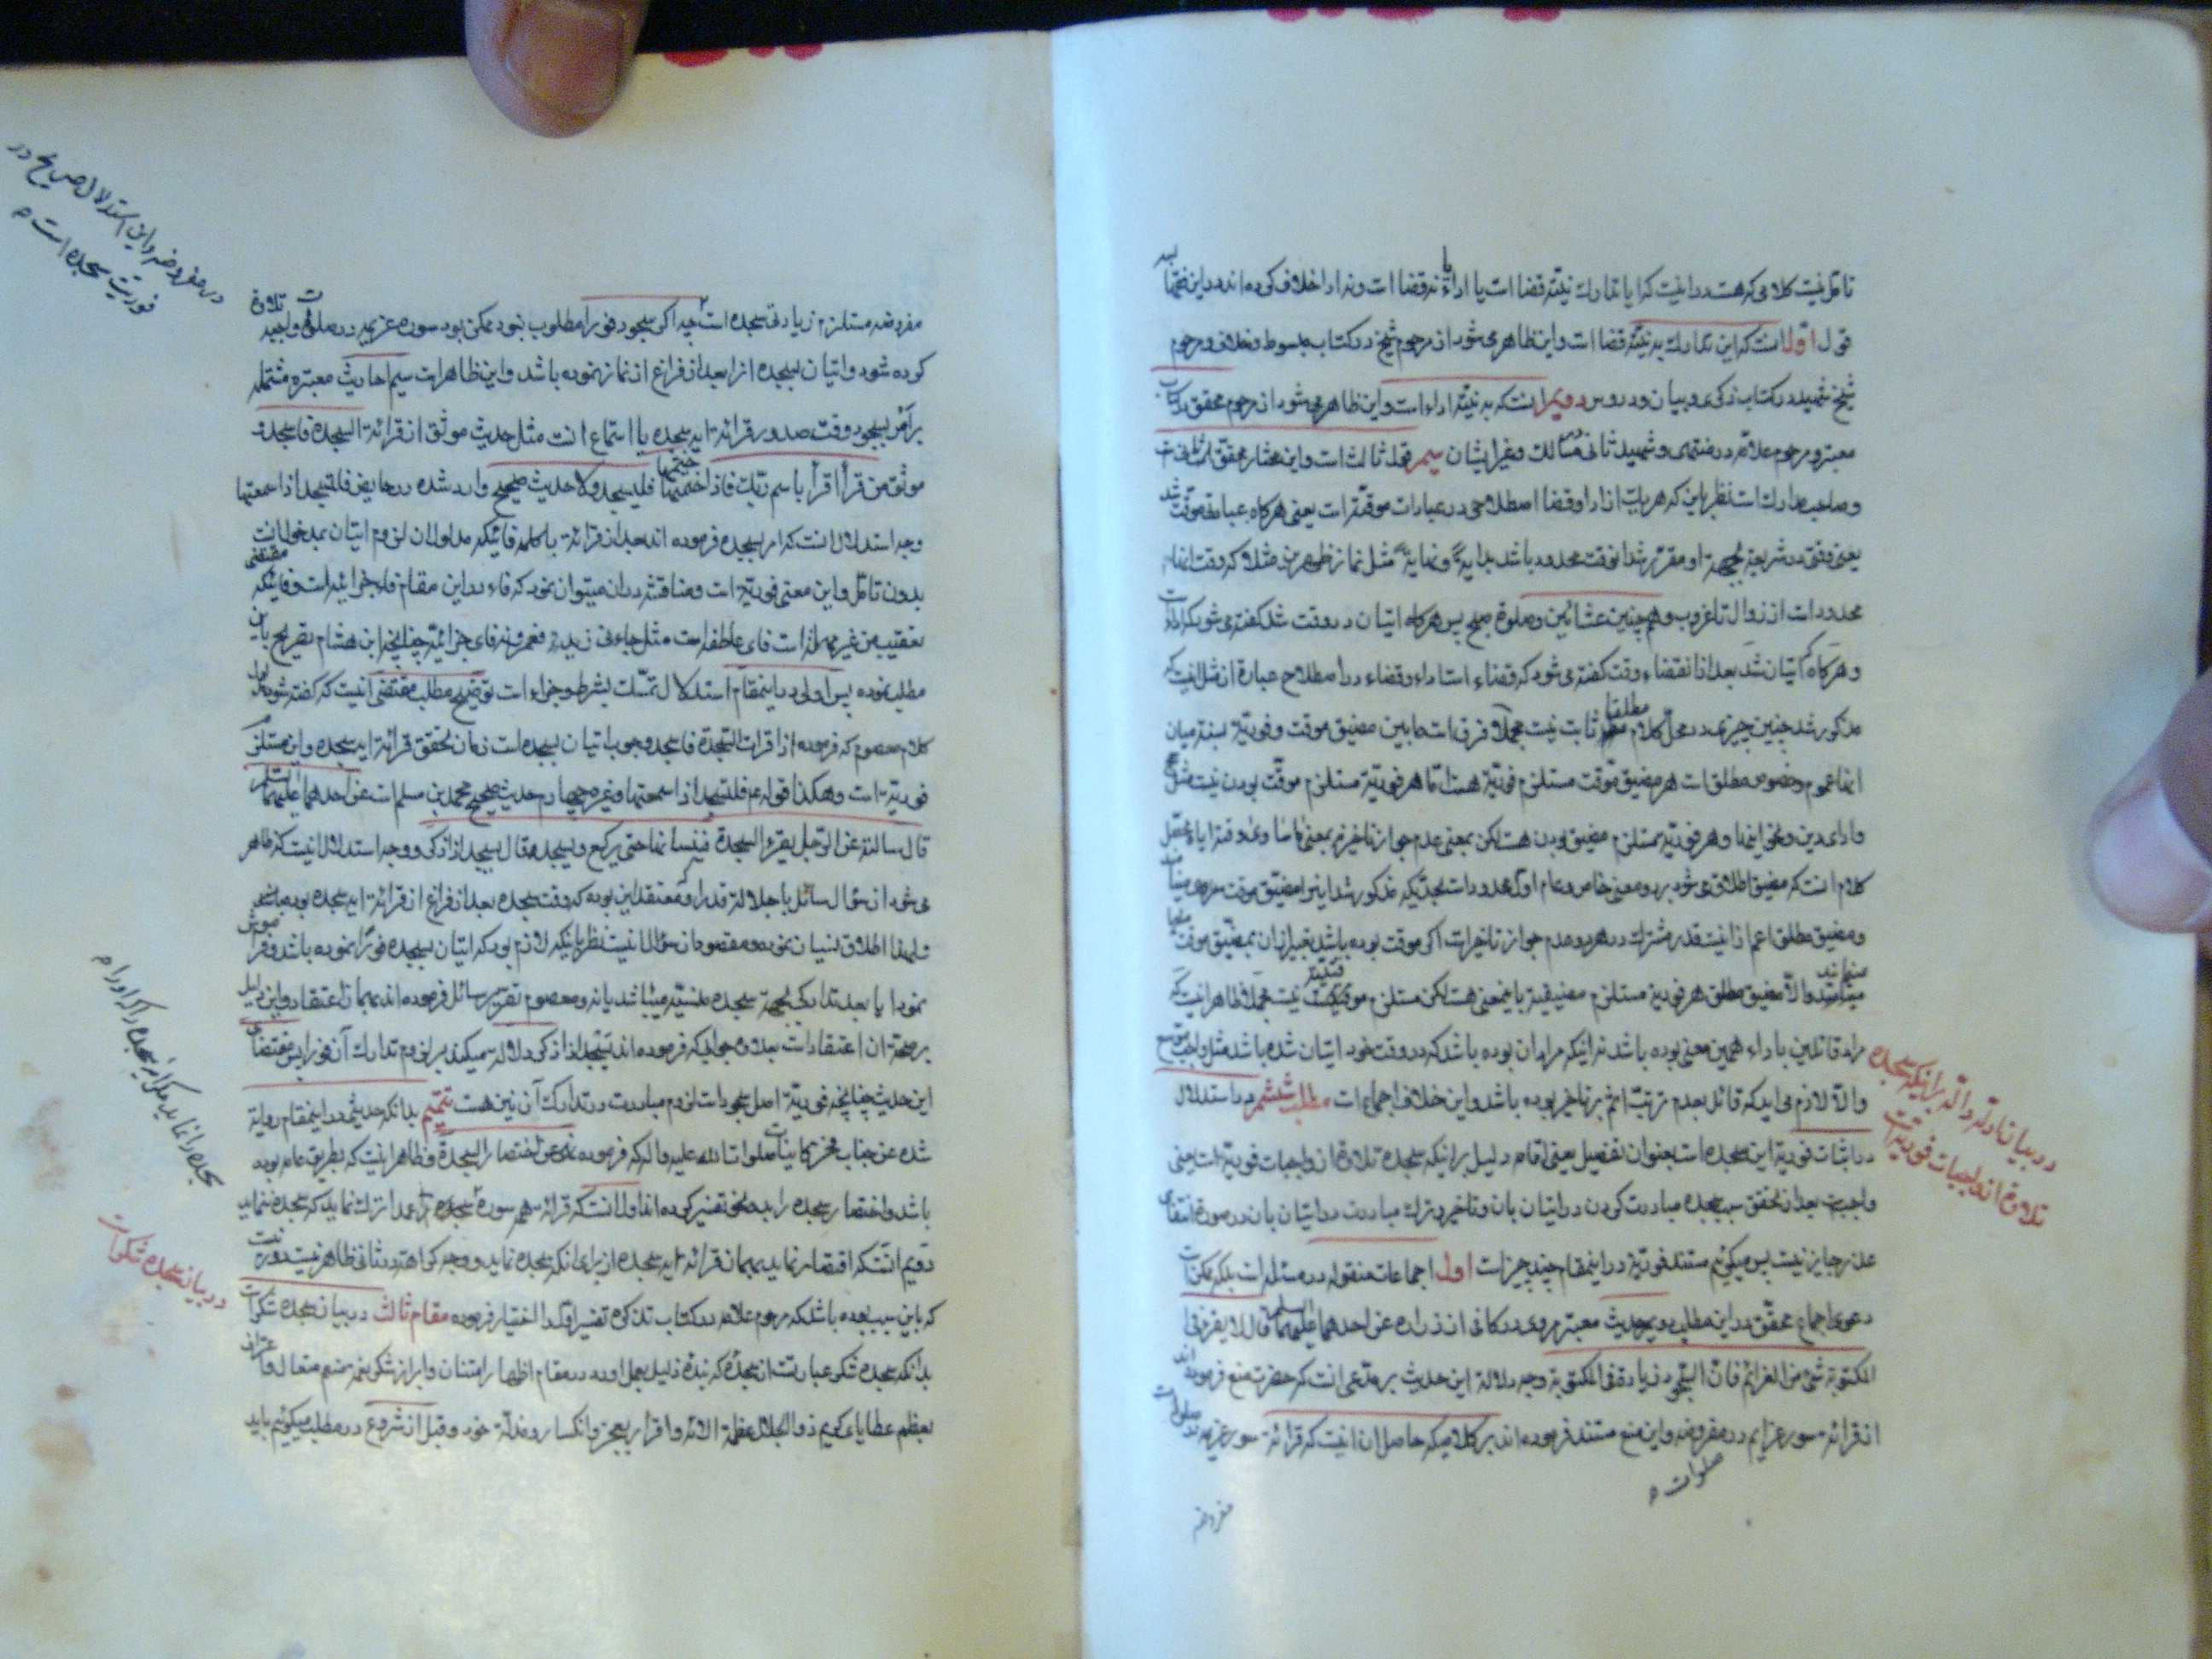 تامل نیست کلامی که هست در اینست که ایا تدارك به نیّة قضا است یا اداء یا نه قضا است و نه ادا خلاف کرده اند در این فقها
قول اوّل انست که این تدارك به نیّة قضا است و این ظاهر می شود از مرحوم شیخ در کتاب مبسوط و خلاف و مرحوم
شیخ شهید در کتاب ذکری و بیان و دروس دویم انست که به نیّة اداء است و این ظاهر می شود از مرحوم محقق در کتاب
معتبر و مرحوم علامه در منتهی و شهید ثانی در مسالك و غیر ایشان سیم قول ثالث است و این مختار محقق ثانی است
و صاحب مدارك است نظر باین که هر یك از ادا و قضا اصطلاحی در عبادات موقّته است یعنی هر کاه عبادة موقت شد
یعنی وقتی در شریعة بجهة او مقرّر شد انوقت محدود باشد بدایةً و نهایةً مثل نماز ظهرین مثلا که وقت انها
محدود است از زوال تا غروب و هم چنین عشائین و صلوة صبح پس هر کاه اتیان در وقت شد کفته می شود که اداء است
و هر کاه اتیان شد بعد از انقضاء وقت کفته می شود که قضاء است اداء و قضاء در اصطلاح عبارة از مثل اینست که
مذکور شد چنین چیزی در محل کلام مطلقا ثابت نیست مجملا فرق است مابین مضیق موقت و فوریّة نسبة میان
انها عموم و خصوص مطلق است هر مضیق موقت مستلزم فوریّة هست امّا هر فوریّة مستلزم موقت بودن نیست مثل حج
و ادای دین و نحو اینها و هر فوریّة مستلزم مضیق بودن هست لکن بمعنی عدم جواز تاخیر نه بمعنی
کلام انست که مضیق اطلاق می شود بر دو معنی خاص و عام اول محدود است بحدّیکه مذکور شد اینرا مضیّق موقت می نامند
و مضیق مطلق اعم از اینست قدر مشترك در هر دو عدم جواز تاخیر است اکر موقت بوده باشد تعبیر از ان بمضیّق موقت
والّا مضیق مطلق هر فوریّة مستلزم مضیقیة باینمعنی هست لکن مستلزم موقتیّة نیست مجملا ظاهر اینست که
مراد قائلین باداء همین معنی بوده باشد نه اینکه مراد ان بوده باشد که در وقت خود اتیان شده باشد مثل واجب موسّع
والّا لازم می اید که قائل بعدم ترتب اثم بر تاخیر بوده باشد و این خلاف اجماع است مطلب ششم در استدلال
در اثبات فوریّة این سجده است بعنوان تفصیل یعنی اقامه دلیل بر اینکه سجده تلاوة از واجبات فوریّة است یعنی
واجبست بعد از تحقق سبب سجده مبادرت کردن در اتیان بان و تاخیر و ترك مبادرت در اتیان بان در صورة انتفای
عذر جایز نیست پس میکوئیم مستند فوریّة در اینمقام چند چیز است اول اجماعات منقوله در مسئله است بلکه ممکن است
دعوی اجماع محقّق در این مطلب دویم حدیث معتبر مروی در کافی از زراره عن احدهما علیهما السلام قال لا یقرء فی
المکتوبة شئ من العزائم فان السجود زیادة فی المکتوبة وجه دلالة این حدیث بر مدّعی انست که حضرت منع فرموده اند
از قرائة سور عزایم در مفروضه و این منع مستند فرموده اند بر کلامیکه حاصل ان اینست که قرائة سور عزیمه در صلوات
صلوات
مفروضه
در بیان ادلّه دالّه بر اینکه سجده
تلاوة از واجبات فوریّه است
مفروضه مستلزم زیادتی سجده است چه اکر سجود فورا مطلوب نبود ممکن بود سوره عزیمه در صلوة واجبه تلاوة
کرده شود و اتیان بسجده انرا بعد از فراغ از نماز نموده باشد و این ظاهر است سیم احادیث معتبره مشتمله
بر امر بسجود وقت صدور قرائة ایه سجده یا استماع انست مثل حدیث موثق اذ قرائة السجدة فاسجد و
موثق من قرأ اقرأ باسم ربّك فاذا ختمها فلیسجد و کذا حدیث صحیح وارد شده در حایض فلتسجد اذا سمعتها
وجه استدلال انست که امر بسجده فرموده اند بعد از قرائة با کلمه فائیکه مدلول ان لزوم اتیان بمدخول انست
بدون تامّل و این معنی فوریّة است و مناقشه در ان میتوان نمود که فاء در این مقام فاء جزائیه است و فائیکه مقتضی
تعقیب من غیر مهلة است فای عاطفه است مثل جاءنی زید فعمرو نه فای جزائیّة چنانچه ابن هشام تصریح باین
مطلب نموده پس اولی در اینمقام استدلال تمسّك بشرط و جزاء است توضیح مطلب مقتضی اینست که کفته شود مدلول
کلام معصوم که فرموده اذا قرأت السجدة فاسجد وجوب اتیان بسجده است زمان تحقق قرائة ایه سجده و این مستلزم
فوریّة است و هکذا قوله ع فلتسجد اذا سمعتها و غیره چهارم حدیث صحیح محمد بن مسلم است عن احدهما علیهما السلام
قال سالته عن الرّجل یقرء السجدة فینساها حتی یرکع و یسجد قال یسجد اذا ذکر و وجه استدلال اینست که ظاهر
می شود از سؤال سائل با جلالة قدر او معتقد این بوده که وقت سجده بعد از فراغ از قرائة ایه سجده بوده باشد
نمود ایا بعد تدارك بجهة سجده منسیّه میباشد یا نه و معصوم تقریر سائل فرموده اند بهمان اعتقاد و این دلیل
بر صحة ان اعتقاد است بعلاوه جوابیکه فرموده اند یسجد اذا ذکر دلالة میکند بر لزوم تدارك آن فورا پس مقتضای
این حدیث چنانچه فوریّة اصل سجود است لزوم مبادرت در تدارك آن نیز هست تتمیم بدانکه حدیثی در اینمقام روایة
شده عن جناب فخر کاینات صلوات الله علیه و اله که فرموده نهی عن اختصار السجدة و ظاهر اینست که بطریق عامه بوده
باشد و اختصار سجده را بدو نحو تفسیر کرده اند اول انست که قرائة هم سوره سجده را عدا ترك نماید که سجده ننماید
دویم انست که اقتصار نماید بهمان قرائة ایه سجده از برای انکه سجده نماید و وجه کراهة در ثانی ظاهر نیست
که باین سبب بوده باشد که مرحوم علامه در کتاب تذکره تفسیر اوّل را اختیار فرموده مقام ثالث در بیان سجده شکر است
بدانکه سجده شکر عبارتست از سجدۀ که بندۀ ذلیل بعمل اورد در مقام اظهار امتنان و ابراز شکر نعمة منعم متعال و اعتراف
بعظم عطایای کریم ذو الجلال و عظمة الائه و اقرار بعجز و انکسار و مذلة خود و قبل از شروع در مطلب میکوئیم باید
در مفروضه و این استدلال صریح در
فوریّت سجده است
در بیان سجده شکر است